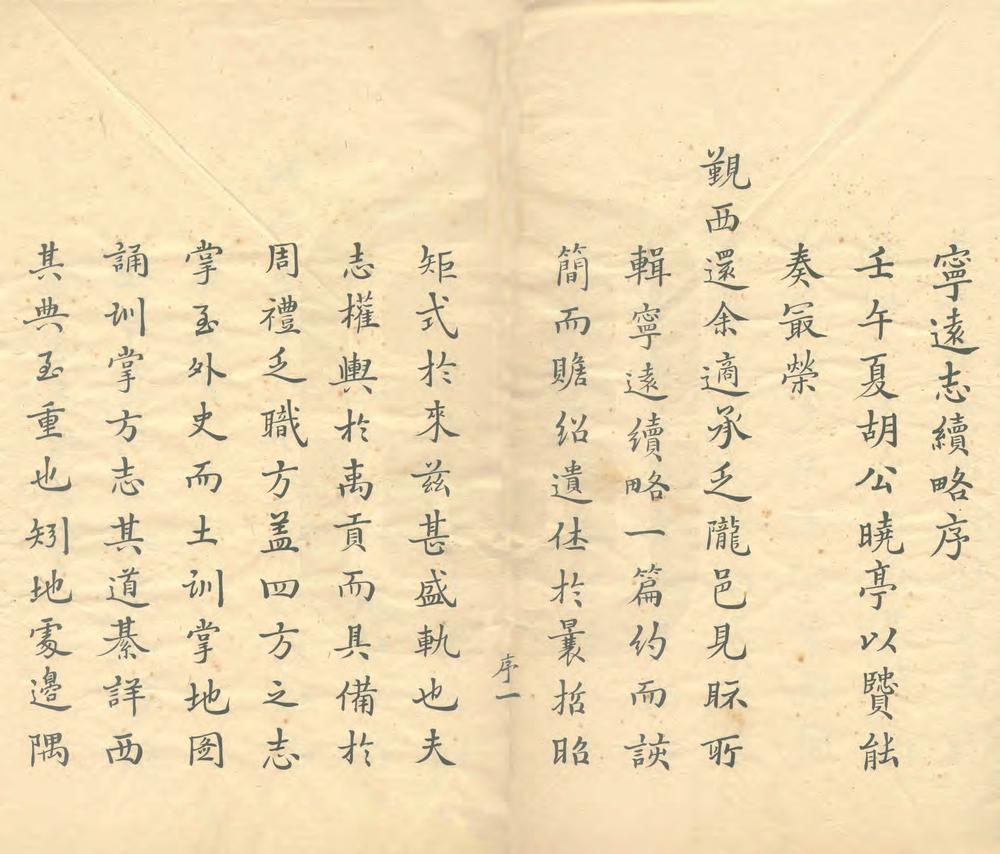 寧遠志續略序
壬午夏胡公曉亭以賢能
奏最榮
覲西還余適承乏隴邑見眎所
輯寧遠續略一篇約而該
簡而贍紹遺徃於曩哲昭
序一
矩式於來兹甚盛軌也夫
志權輿於禹貢而具備於
周禮之職方盖四方之志
掌至外史而土訓掌地圖
誦訓掌方志其道綦詳而
其典至重也矧地處邊隅